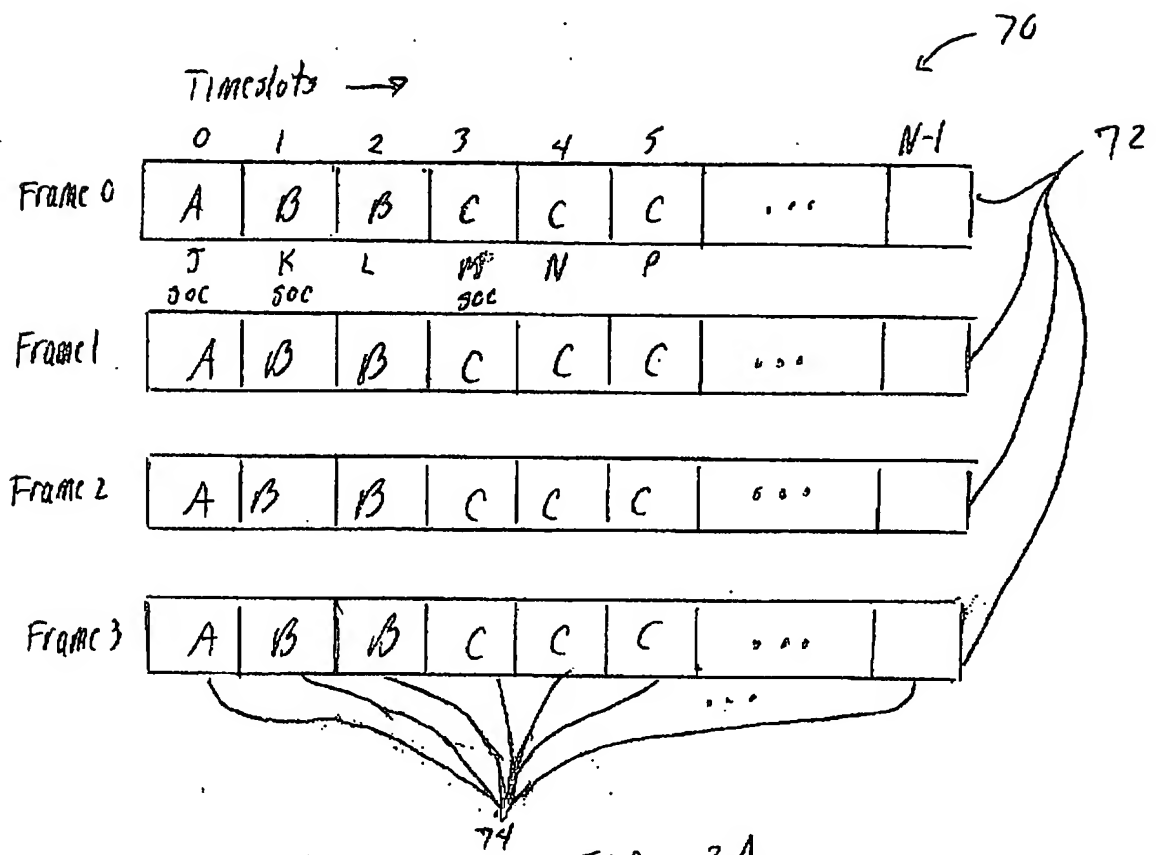 70
Timeslots →
0 1 2 3 4 5 N-1
72
Frame 0 A B B C C C ...
J K L M N P
soc soc soc
Frame 1 A B B C C C ...
Frame 2 A B B C C C ...
Frame 3 A B B C C C ...
...
74